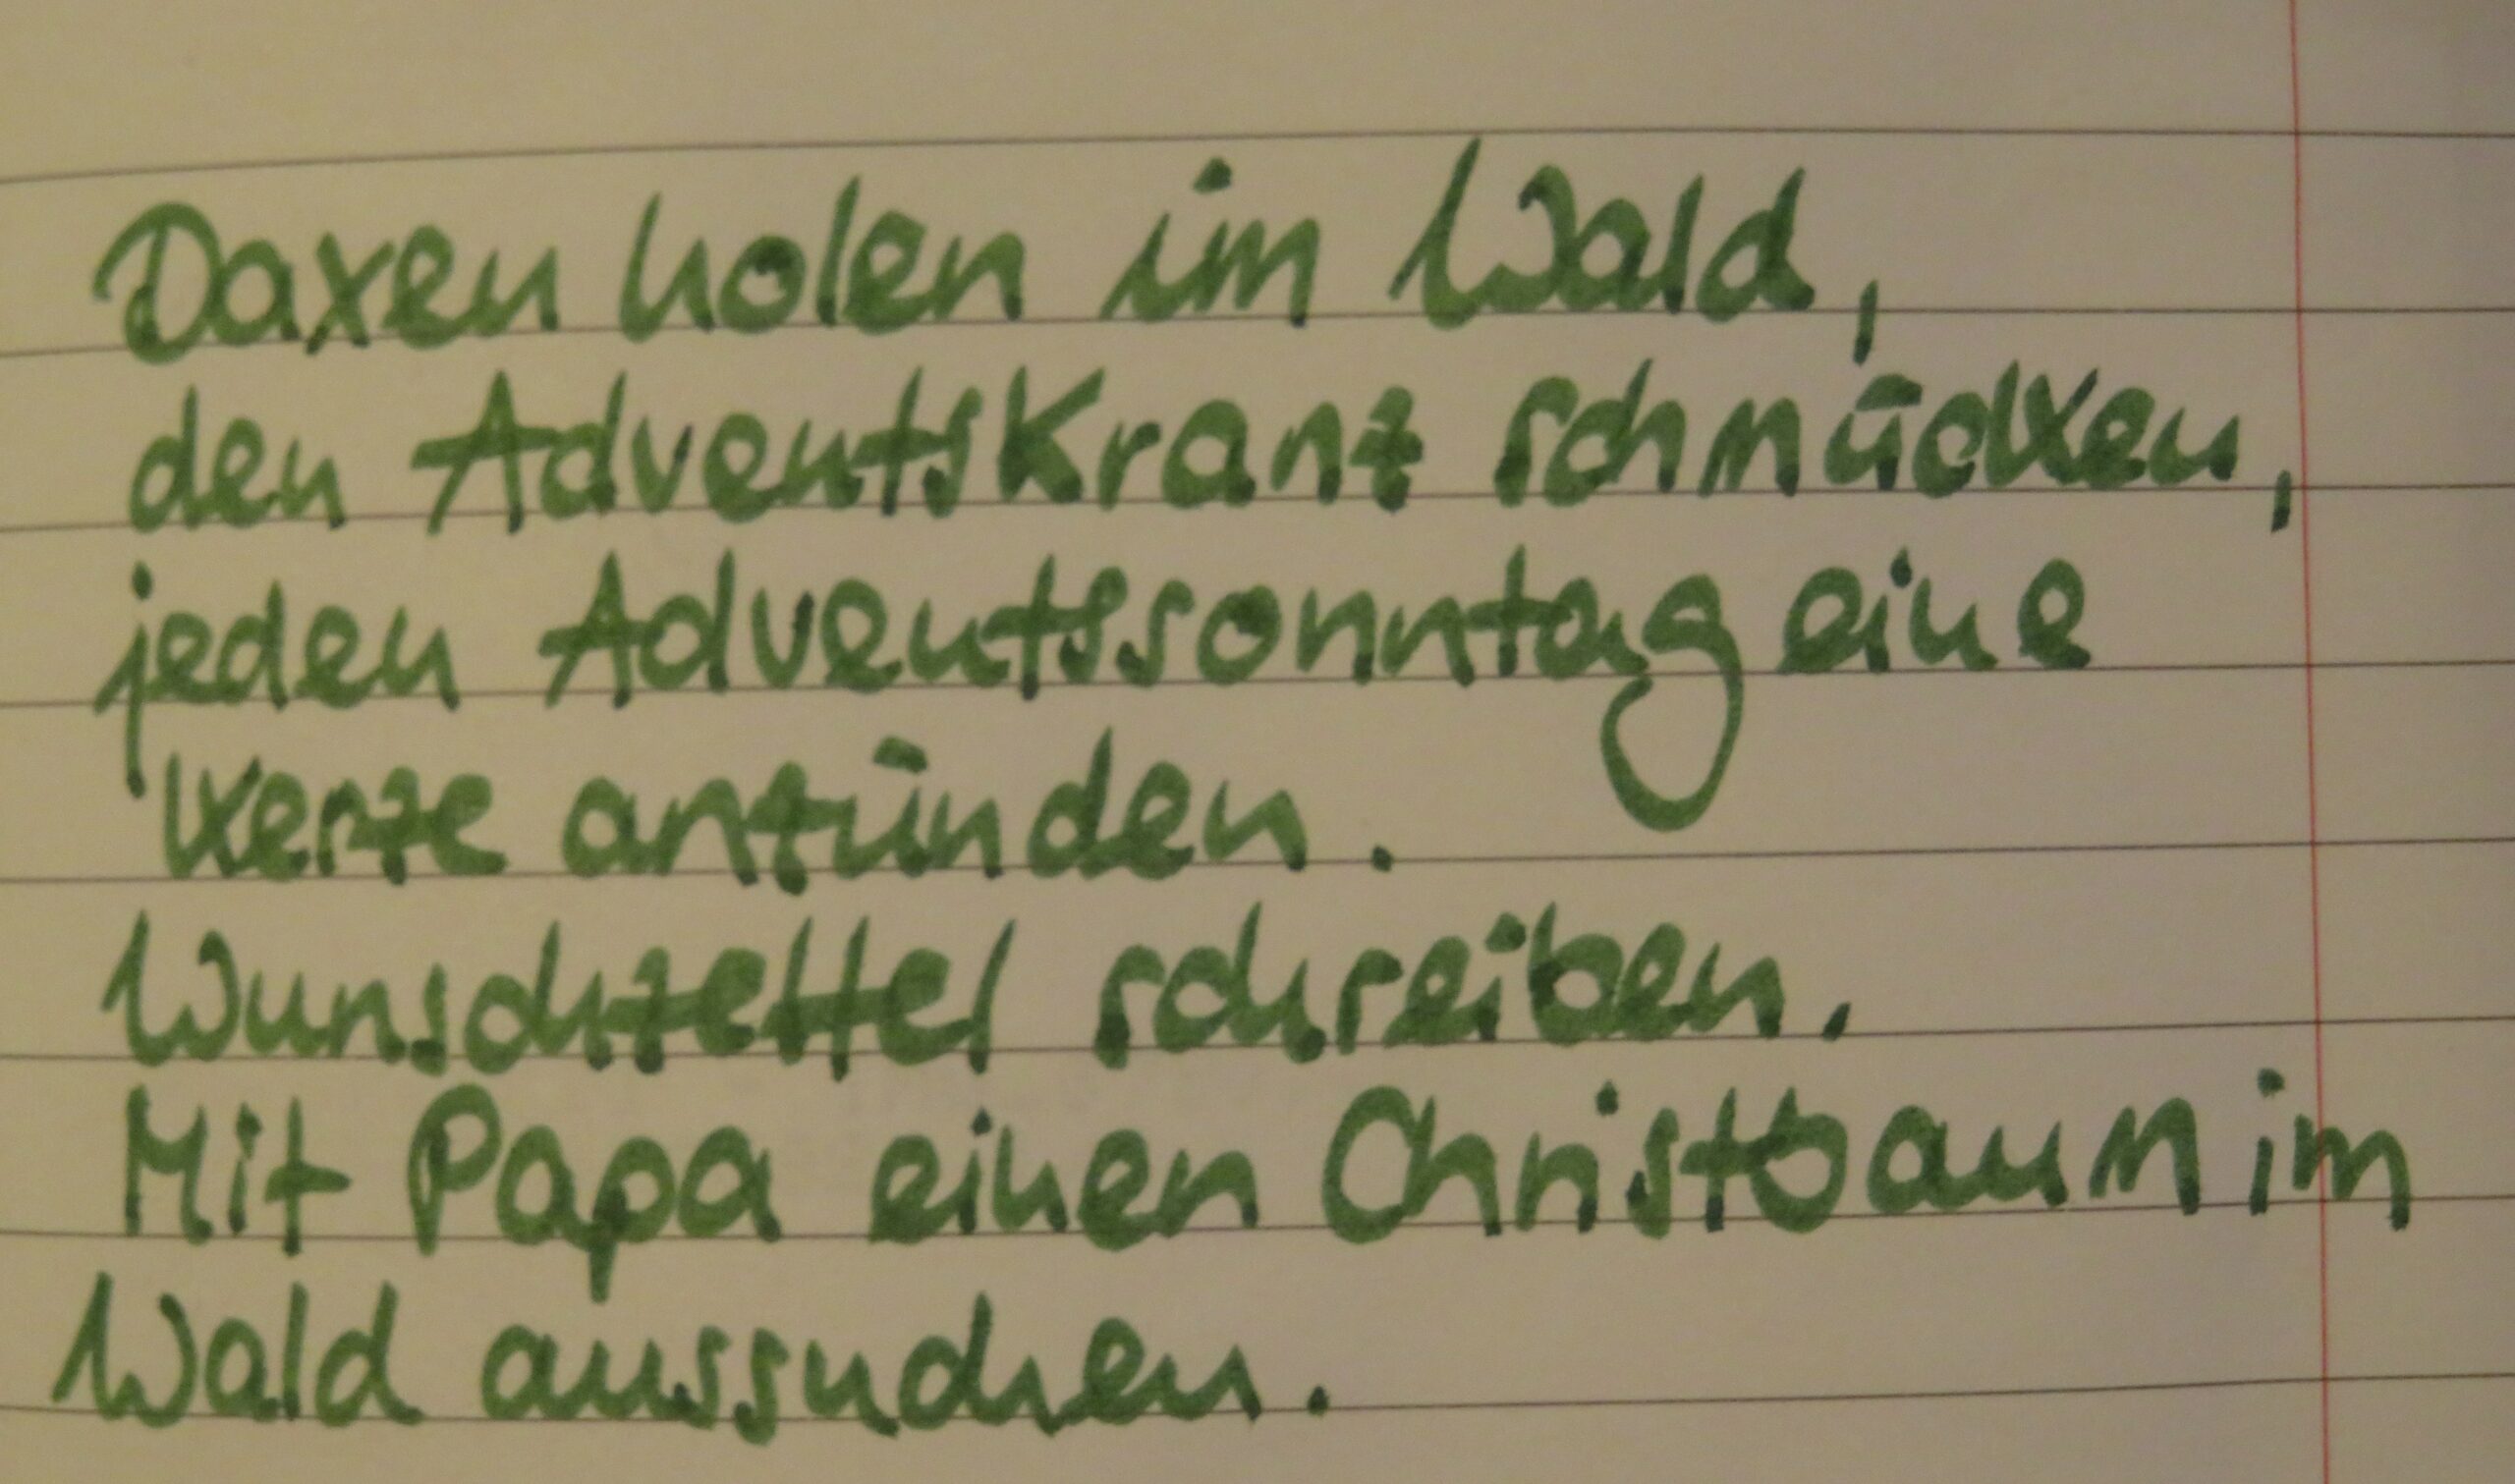 Daxen holen im Wald,
den Adventskranz schmücken,
jeden Adventssonntag eine
Kerze anzünden.
Wunschzettel schreiben.
Mit Papa einen Christbaum im
Wald aussuchen.